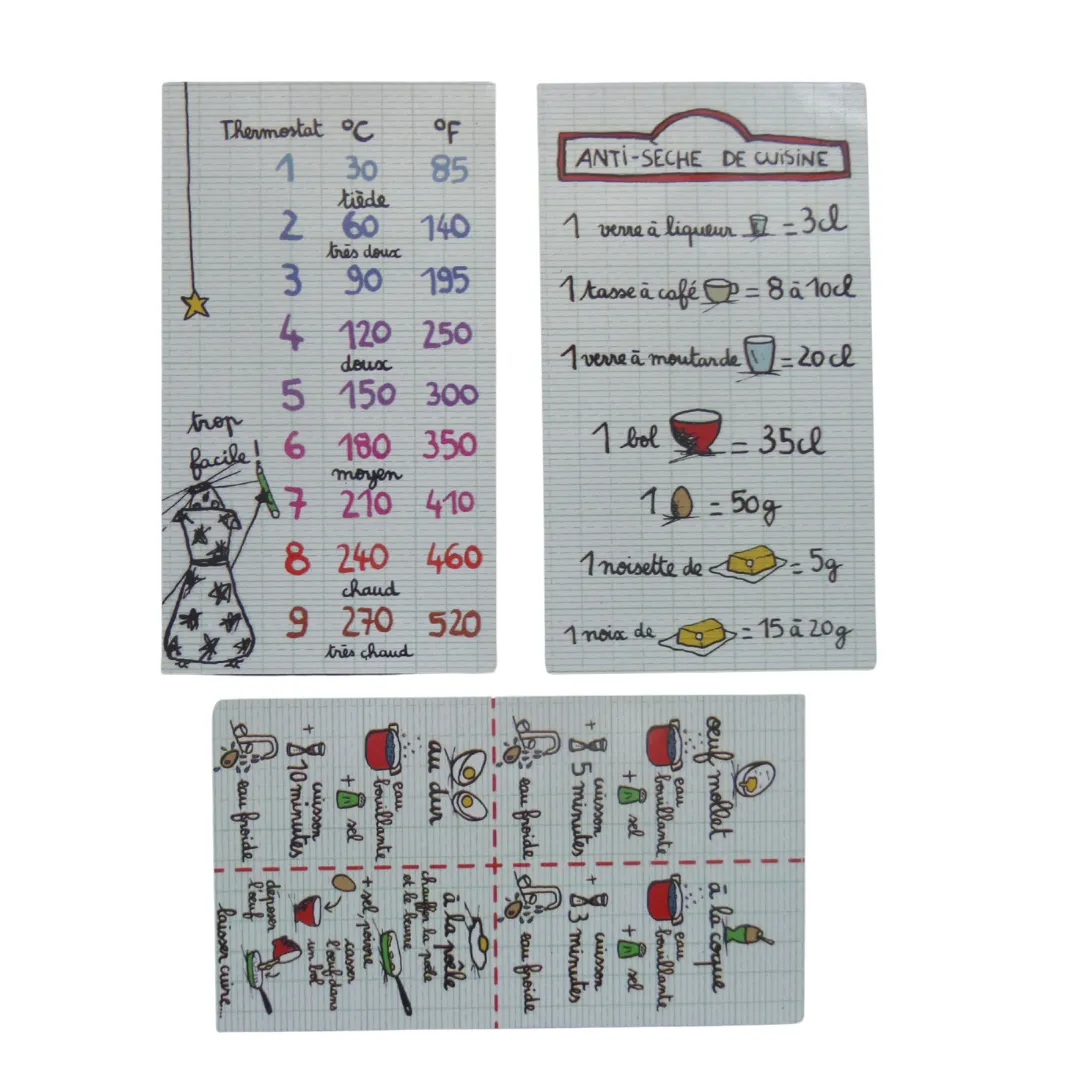 Thermostat °C °F
1 30 85
tiède
2 60 140
très doux
3 90 195
4 120 250
doux
5 150 300
trop
facile !
6 180 350
moyen
7 210 410
8 240 460
chaud
9 270 520
très chaud
ANTI-SECHE DE CUISINE
1 verre à liqueur = 3cl
1 tasse à café = 8 à 10cl
1 verre à moutarde = 20 cl
1 bol = 35cl
1 = 50g
1 noisette de = 5g
1 noix de = 15 à 20g
œuf mollet
eau
bouillante
+ sel
cuisson
+ 5 minutes
eau froide
à la coque
eau
bouillante
+ sel
cuisson
+ 3 minutes
eau froide
au dur
eau
bouillante
+ sel
cuisson
+ 10 minutes
eau froide
à la poêle
chauffer la poêle
et le beurre
+ sel, poivre
casser
l'œuf dans
un bol
déposer
l'œuf
laisser cuire...